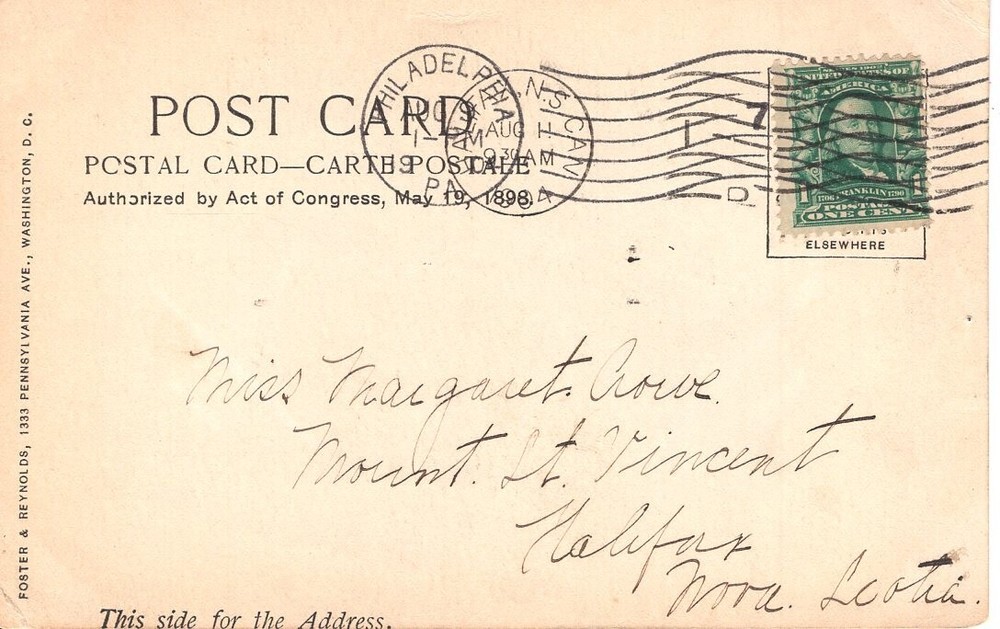 POST CARD
POSTAL CARD—CARTE POSTALE
Authorized by Act of Congress, May 19, 1898.
FOSTER & REYNOLDS, 1333 PENNSYLVANIA AVE., WASHINGTON, D. C.
PHILADELPHIA
PA
N.S. CAN
AUG 11
9 30 AM
D
UNITED STATES OF
AMERICA
1706 FRANKLIN 1790
POSTAGE
ONE CENT
ELSEWHERE
Miss Margaret. Crowe.
Mount. St. Vincent
Halifax
Nova. Scotia.
This side for the Address.